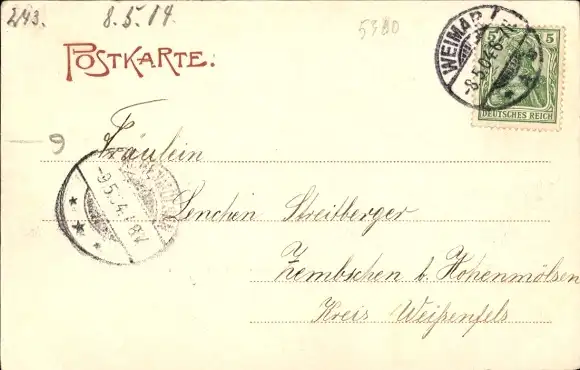 243. 8.5.14. 5380
POSTKARTE.
WEIMAR
8.5.04.6-7N.
5 5
DEUTSCHES REICH
9
Fräulein
-9.5.4.7-8V.
Lenchen Streitberger
Zembschen b. Hohenmölsen
Kreis Weißenfels